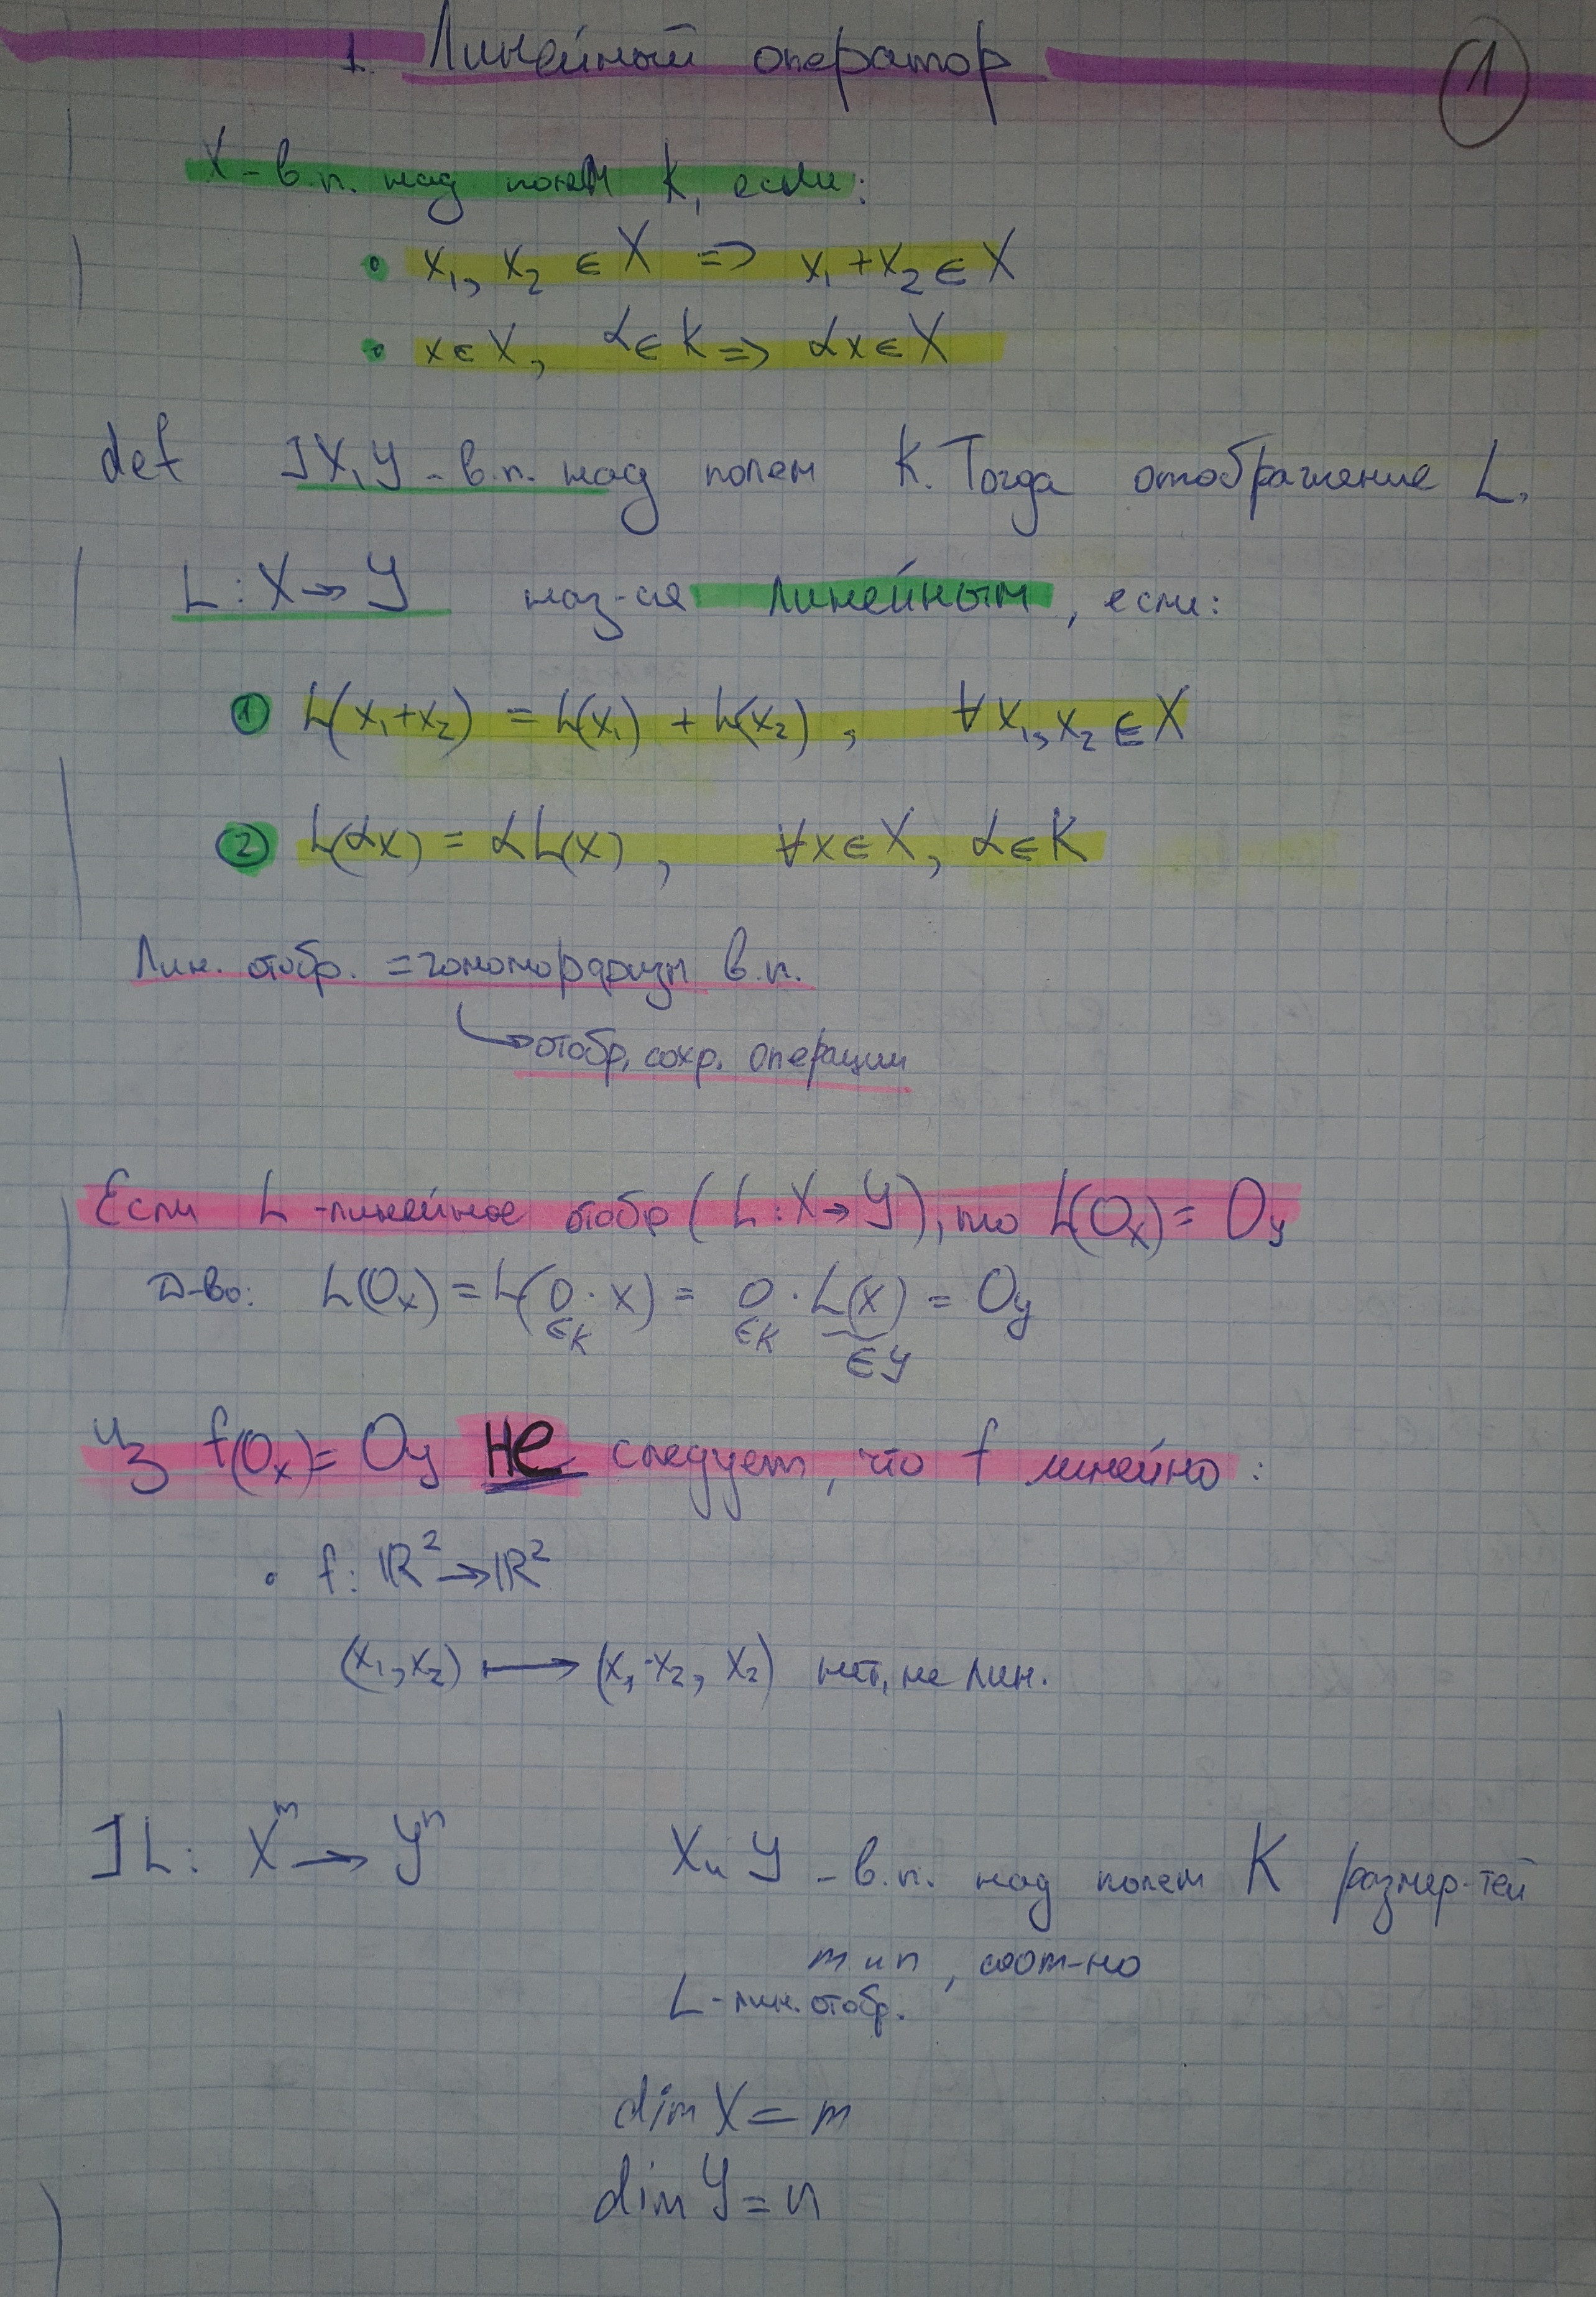 1. Линейный оператор
1
X - в.п. над полем K, если:
• x₁, x₂ ∈ X => x₁ + x₂ ∈ X
• x ∈ X, α ∈ K => αx ∈ X
def ] X, Y - в.п. над полем K. Тогда отображение L,
L : X → Y наз-ся линейным, если:
① L(x₁+x₂) = L(x₁) + L(x₂), ∀x₁, x₂ ∈ X
② L(αx) = αL(x), ∀x ∈ X, α ∈ K
Лин. отобр. = гомоморфизм в.п.
↳ отобр, сохр. операции
Если L - линейное отобр (L : X → Y), то L(0ₓ) = 0ᵧ
Д-во: L(0ₓ) = L(0 · x) = 0 · L(x) = 0ᵧ
∈K ∈K ∈Y
Из f(0ₓ) = 0ᵧ НЕ следует, что f линейно:
• f: ℝ² → ℝ²
(x₁, x₂) ⟼ (x₁·x₂, x₂) нет, не лин.
] L: Xᵐ → Yⁿ X и Y - в.п. над полем K размер-тей
m и n, соот-но
L - лин. отобр.
dim X = m
dim Y = n